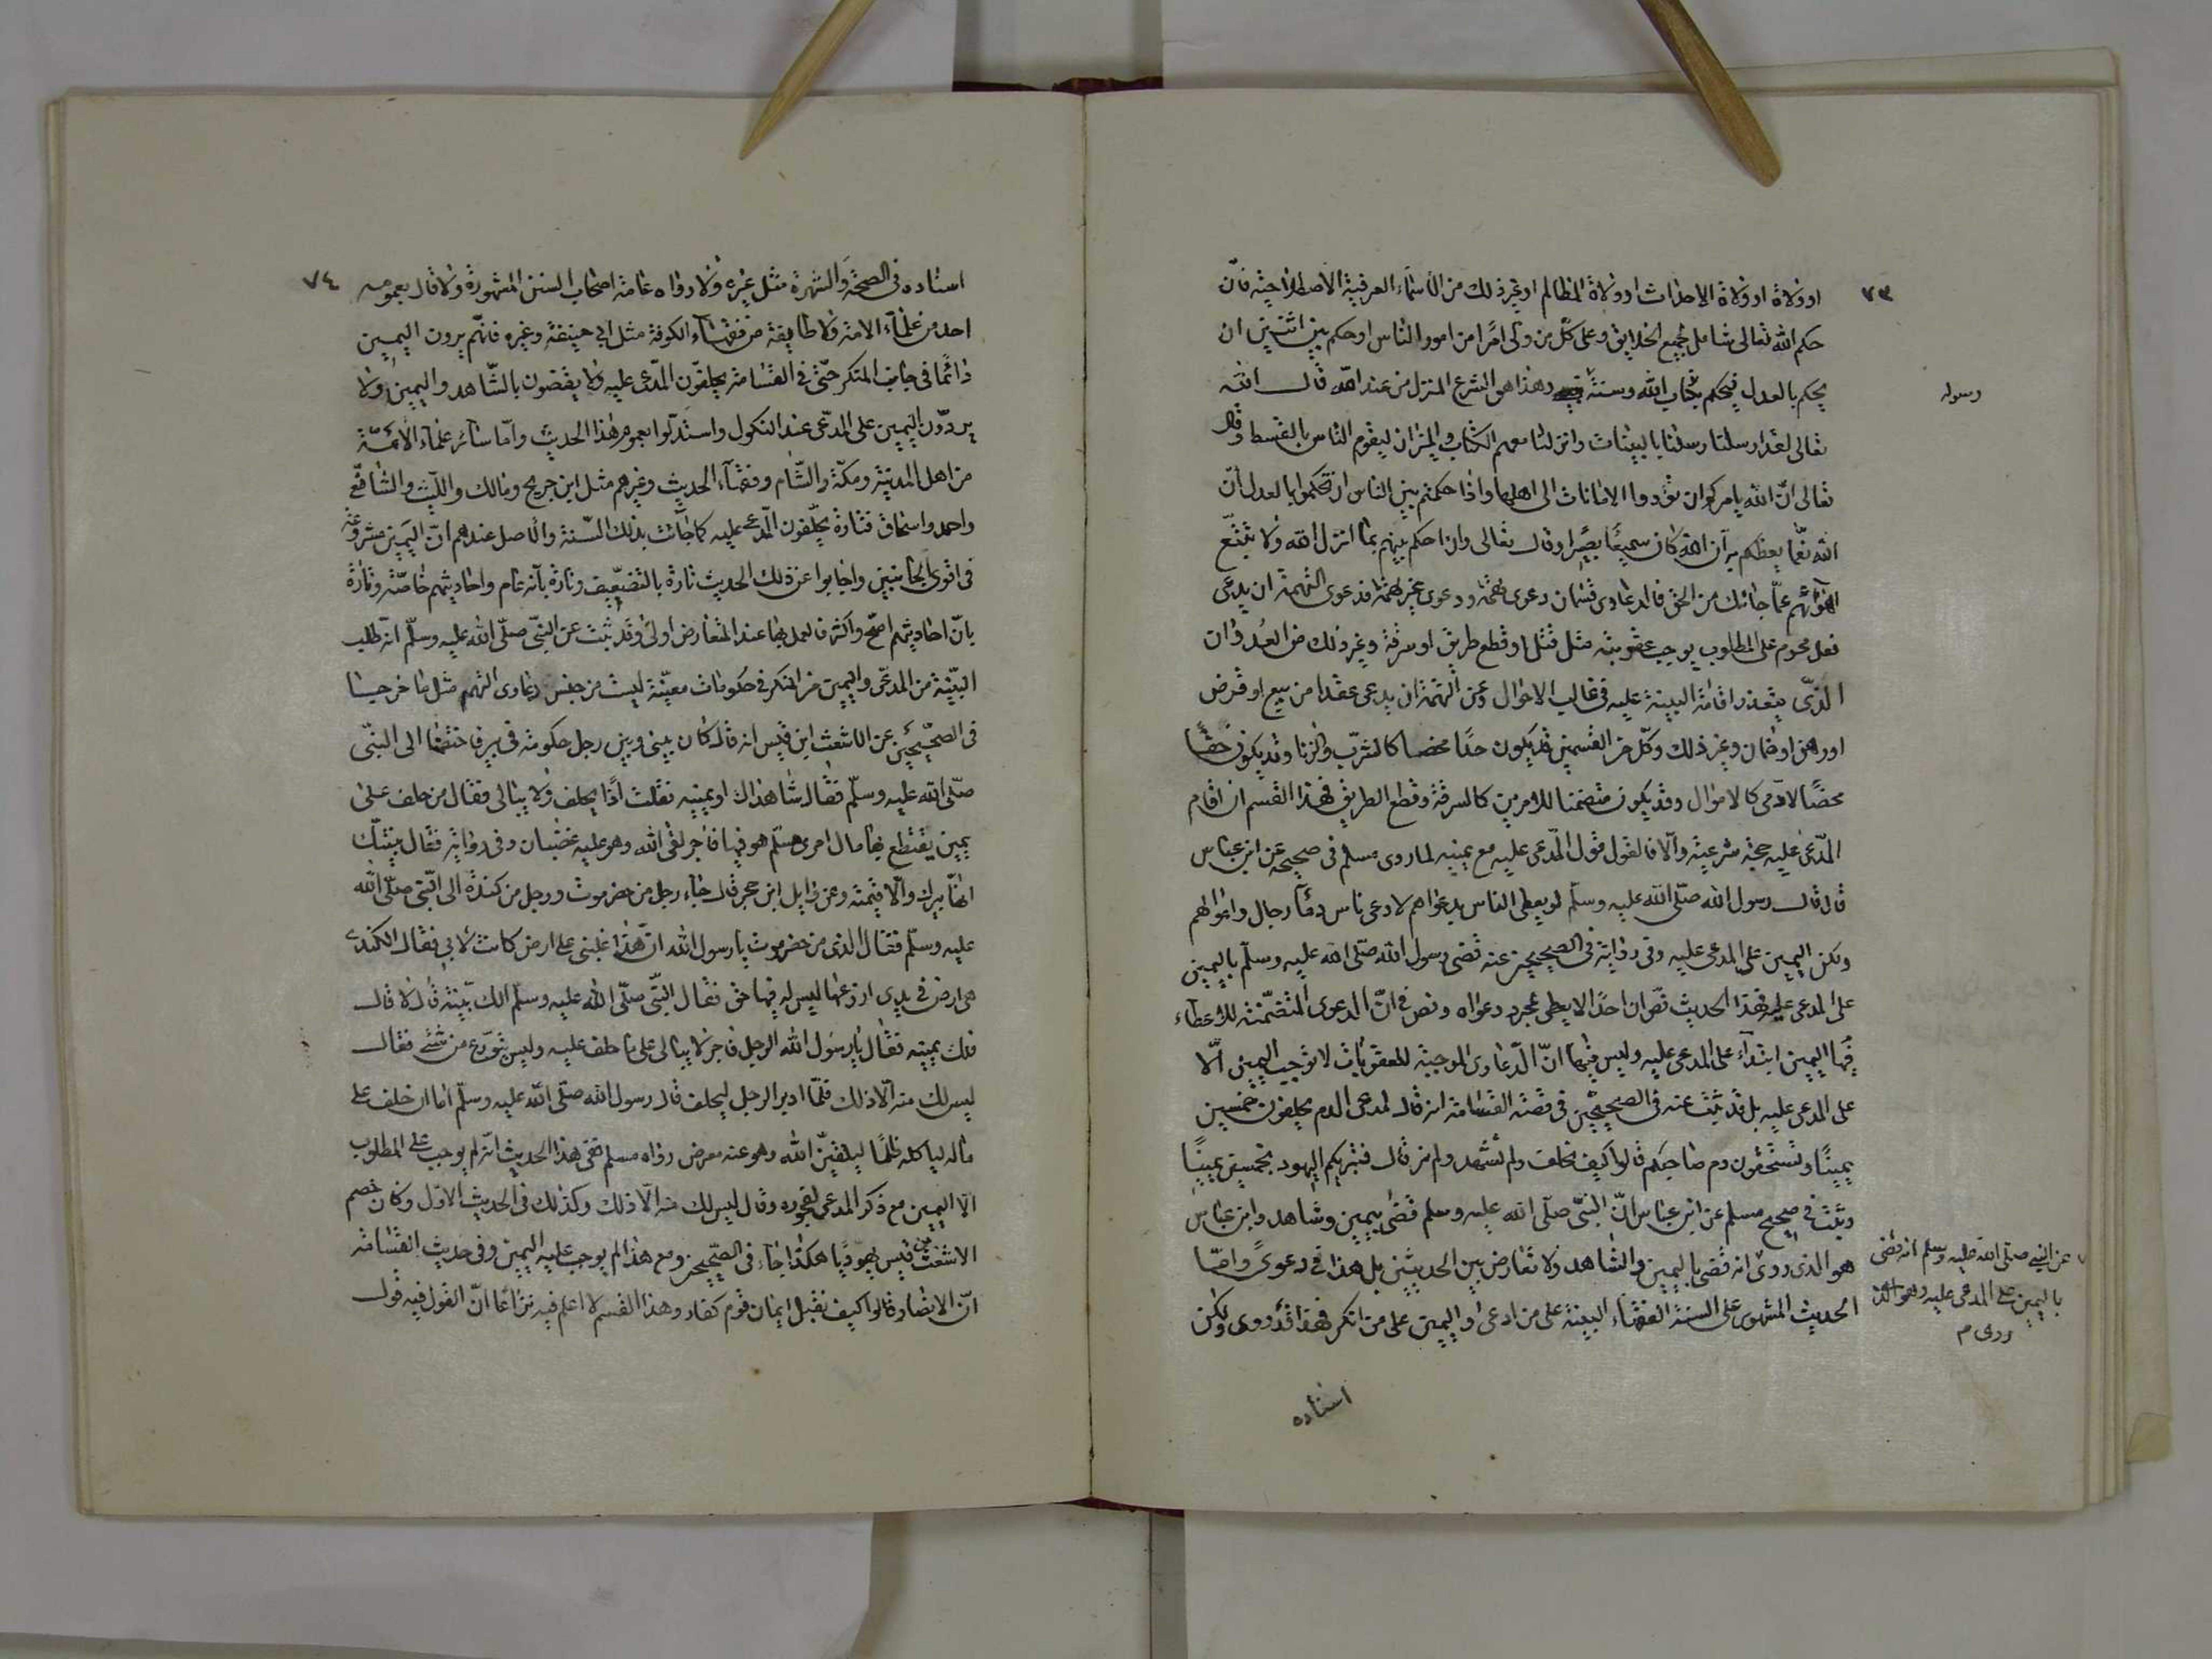 ٧٣
او ولاة او ولاة الاحداث او ولاة المظالم او غير ذلك من الاسماء العرفية الاصطلاحية فان
حكم الله تعالى شامل لجميع الخلايق وعلى كل من ولى امرا من امور الناس او حكم بين اثنين ان
يحكم بالعدل فيحكم بكتاب الله وسنة وهذا هو الشرع المنزل من عند الله قال الله
رسوله
تعالى لقد ارسلنا رسلنا بالبينات وانزلنا معهم الكتاب والميزان ليقوم الناس بالقسط وقال
تعالى ان الله يامركم ان تؤدوا الامانات الى اهلها واذا حكمتم بين الناس ان تحكموا بالعدل ان
الله نعما يعظكم به ان الله كان سميعا بصيرا وقال تعالى وان احكم بينهم بما انزل الله ولا تتبع
اهوائهم عما جائك من الحق فالدعاوى قسمان دعوى تهمة ودعوى غير تهمة فدعوى التهمة ان يدعى
فعل محرم على المطلوب يوجب عقوبته مثل قتل او قطع طريق او سرقة وغير ذلك من العدوان
الذى يتعذر اقامة البينة عليه فى غالب الاحوال وغير التهمة ان يدعى عقدا من بيع او قرض
او رهن او ضمان وغير ذلك وكل من القسمين قد يكون حدا محضا كالشرب والزنا وقد يكون حقا
محضا لادمى كالاموال وقد يكون متضمنا للامرين كالسرقة وقطع الطريق فهذا القسم ان اقام
المدعى عليه حجة شرعية والا فالقول قول المدعى عليه مع يمينه لما روى مسلم فى صحيحه عن ابن عباس
قال قال رسول الله صلى الله عليه وسلم لو يعطى الناس بدعواهم لادعى ناس دماء رجال واموالهم
ولكن اليمين على المدعى عليه وفى رواية فى الصحيحين عنه قضى رسول الله صلى الله عليه وسلم باليمين
على المدعى عليه فهذا الحديث نص ان احدا لا يعطى بمجرد دعواه ونص فى ان الدعوى المتضمنة للاعطاء
فيها اليمين ابتداء على المدعى عليه وليس فيها ان الدعاوى الموجبة للعقوبات لا توجب اليمين الا
على المدعى عليه بل قد ثبت عنه فى الصحيحين فى قصة القسامة انه قال لمدعى الدم تحلفون خمسين
يمينا وتستحقون دم صاحبكم قالوا كيف نحلف ولم نشهد ولم نر قال فتبريكم اليهود بخمسين يمينا
وثبت فى صحيح مسلم عن ابن عباس ان النبى صلى الله عليه وسلم قضى بيمين وشاهد وابن عباس
هو الذى روى انه قضى باليمين والشاهد ولا تعارض بين الحديثين بل هذا فى دعوى واما
الحديث المشهور على السنة الفقهاء البينة على من ادعى واليمين على من انكر فهذا قد روى ولكن
عن النبى صلى الله عليه وسلم انه قضى
باليمين على المدعى عليه وهو الذى
روى م
اسناده
٧٤
اسناده فى الصحة والشهرة مثل غيره ولا رواه عامة اصحاب السنن المشهورة ولا قال بعمومه
احد من علماء الامة ولا طايفة من فقهاء الكوفة مثل ابى حنيفة وغيره فانهم يرون اليمين
دائما فى جانب المنكر حتى فى القسامة يحلفون المدعى عليه ولا يقضون بالشاهد واليمين ولا
يردون اليمين على المدعى عند النكول واستدلوا بعموم هذا الحديث واما سائر علماء الائمة
من اهل المدينة ومكة والشام وفقهاء الحديث وغيرهم مثل ابن جريج ومالك والليث والشافعى
واحمد واسحاق فتارة يحلفون المدعى عليه كما جائت بذلك السنة والاصل عندهم ان اليمين مشروعة
فى اقوى الجانبين واجابوا عن ذلك الحديث تارة بالتضعيف وتارة بانه عام واحاديثهم خاصة وتارة
بان احاديثهم اصح واكثر فالعمل بها عند التعارض اولى وقد ثبت عن النبى صلى الله عليه وسلم انه طلب
البينة من المدعى واليمين من المنكر فى حكومات معينة ليست من جنس دعاوى التهم مثل ما خرجا
فى الصحيحين عن الاشعث ابن قيس انه قال كان بينى وبين رجل حكومة فى بير فاختصمنا الى النبى
صلى الله عليه وسلم فقال شاهداك او يمينه فقلت اذا يحلف ولا يبالى فقال من حلف على
يمين يقتطع بها مال امرئ مسلم هو فيها فاجر لقى الله وهو عليه غضبان وفى رواية فقال بينتك
انها بيرك والا فيمينه وعن وايل ابن حجر قال جاء رجل من حضرموت ورجل من كندة الى النبى صلى الله
عليه وسلم فقال الذى من حضرموت يا رسول الله ان هذا غلبنى على ارض كانت لابى فقال الكندى
هى ارض فى يدى ازرعها ليس له فيها حق فقال النبى صلى الله عليه وسلم الك بينة قال لا قال
فلك يمينه فقال يا رسول الله الرجل فاجر لا يبالى على ما حلف عليه وليس يتورع من شئ فقال
ليس لك منه الا ذلك فلما ادبر الرجل ليحلف قال رسول الله صلى الله عليه وسلم اما ان حلف على
ماله لياكله ظلما ليلقين الله وهو عنه معرض رواه مسلم ففى هذا الحديث انه لم يوجب على المطلوب
الا اليمين مع ذكر المدعى لفجوره وقال ليس لك منه الا ذلك وكذلك فى الحديث الاول وكان خصم
الاشعث بن قيس يهوديا هكذا جاء فى الصحيحين ومع هذا لم يوجب عليه اليمين وفى حديث القسامة
ان الانصار قالوا كيف نقبل ايمان قوم كفار وهذا القسم لا اعلم فيه نزاعا ان القول فيه قول